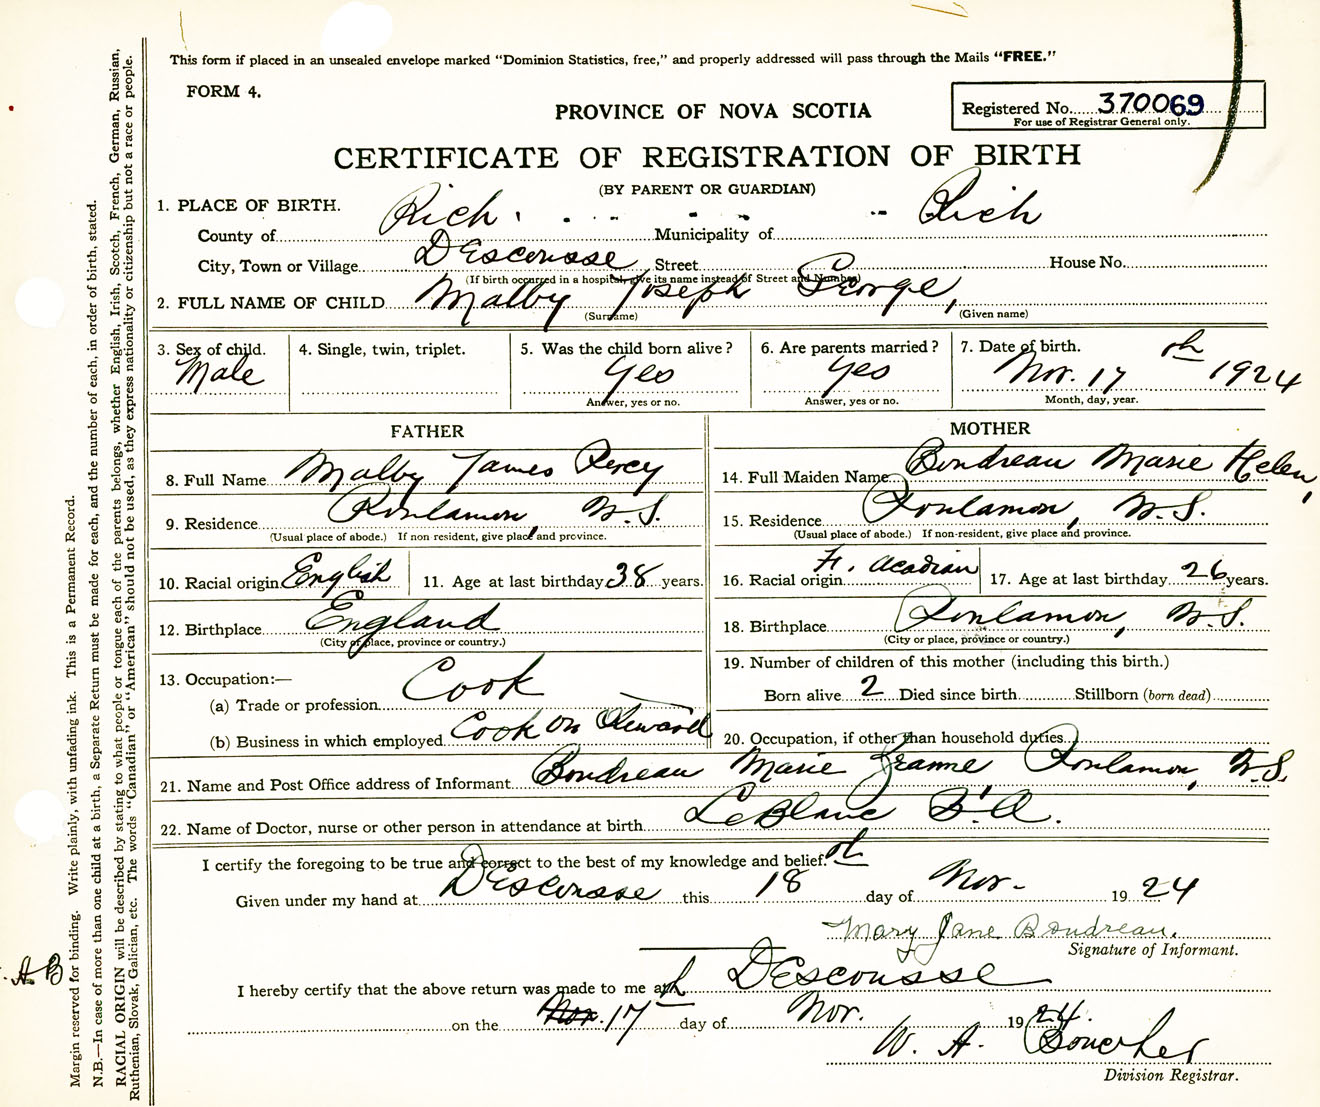 This form if placed in an unsealed envelope marked “Dominion Statistics, free,” and properly addressed will pass through the Mails “FREE.”
FORM 4.
PROVINCE OF NOVA SCOTIA
Registered No. 370069
For use of Registrar General only.
CERTIFICATE OF REGISTRATION OF BIRTH
(BY PARENT OR GUARDIAN)
1. PLACE OF BIRTH.
County of Rich. Municipality of Rich
City, Town or Village D'Escousse Street House No.
(If birth occurred in a hospital, give its name instead of Street and Number)
2. FULL NAME OF CHILD Malby Joseph George,
(Surname) (Given name)
3. Sex of child. 4. Single, twin, triplet. 5. Was the child born alive? 6. Are parents married? 7. Date of birth.
Male Yes Yes Nov. 17th 1924
Answer, yes or no. Answer, yes or no. Month, day, year.
FATHER
8. Full Name Malby James Percy
9. Residence Poulamon, N.S.
(Usual place of abode.) If non-resident, give place and province.
10. Racial origin English 11. Age at last birthday 38 years.
12. Birthplace England
(City or place, province or country.)
13. Occupation:—
(a) Trade or profession Cook
(b) Business in which employed Cook on Steward
MOTHER
14. Full Maiden Name Boudreau Marie Helen,
15. Residence Poulamon, N.S.
(Usual place of abode.) If non-resident, give place and province.
16. Racial origin Fr. Acadian 17. Age at last birthday 26 years.
18. Birthplace Poulamon, N.S.
(City or place, province or country.)
19. Number of children of this mother (including this birth.)
Born alive 2 Died since birth Stillborn (born dead)
20. Occupation, if other than household duties
21. Name and Post Office address of Informant Boudreau Marie Jeanne Poulamon, N.S.
22. Name of Doctor, nurse or other person in attendance at birth LeBlanc B. A.
I certify the foregoing to be true and correct to the best of my knowledge and belief.
Given under my hand at D'Escousse this 18th day of Nov. 1924
Mary Jane Boudreau.
Signature of Informant.
I hereby certify that the above return was made to me at D'Escousse
on the 17th day of Nov. 1924.
W. A. Boucher
Division Registrar.
Margin reserved for binding. Write plainly, with unfading ink. This is a Permanent Record.
N.B.—In case of more than one child at a birth, a Separate Return must be made for each, and the number of each, in order of birth, stated.
RACIAL ORIGIN will be described by stating to what people or tongue each of the parents belongs, whether English, Irish, Scotch, French, German, Russian,
Ruthenian, Slovak, Galician, etc. The words “Canadian” or “American” should not be used, as they express nationality or citizenship but not a race or people.
AB